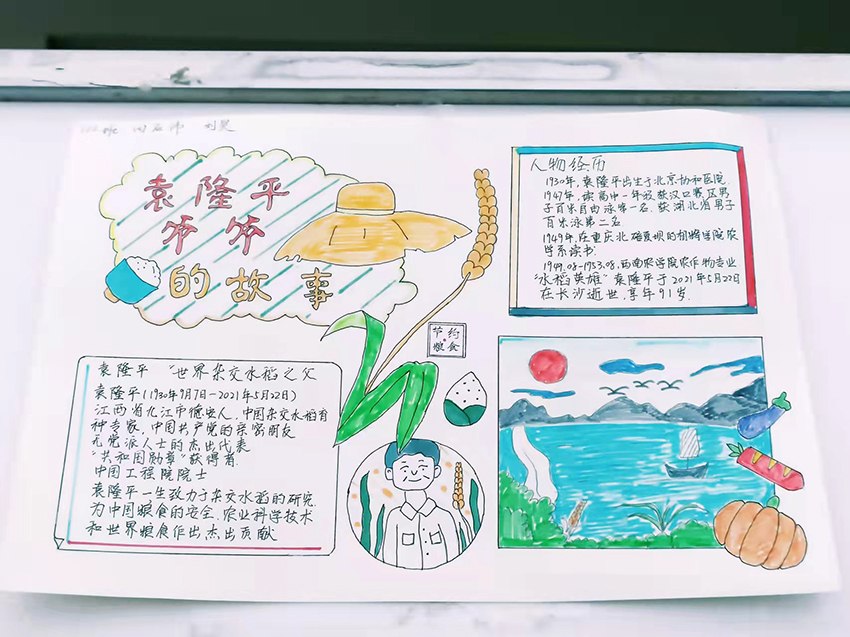 袁隆平
爷爷
的故事
节约
粮食
人物经历
1930年,袁隆平出生于北京协和医院.
1947年,读高中一年级获汉口赛区男
子百米自由泳第一名.获湖北省男子
百米泳第二名
1949年,在重庆北碚夏坝的相辉学院农
学系读书.
1949.08-1953.08,西南农学院农作物专业
"水稻英雄"袁隆平于2021年5月22日
在长沙逝世,享年91岁.
袁隆平 "世界杂交水稻之父
袁隆平(1930年9月7日-2021年5月22日)
江西省九江市德安人,中国杂交水稻育
种专家,中国共产党的亲密朋友
无党派人士的杰出代表
"共和国勋章"获得者.
中国工程院院士
袁隆平一生致力于杂交水稻的研究
为中国粮食的安全.农业科学技术
和世界粮食作出杰出贡献